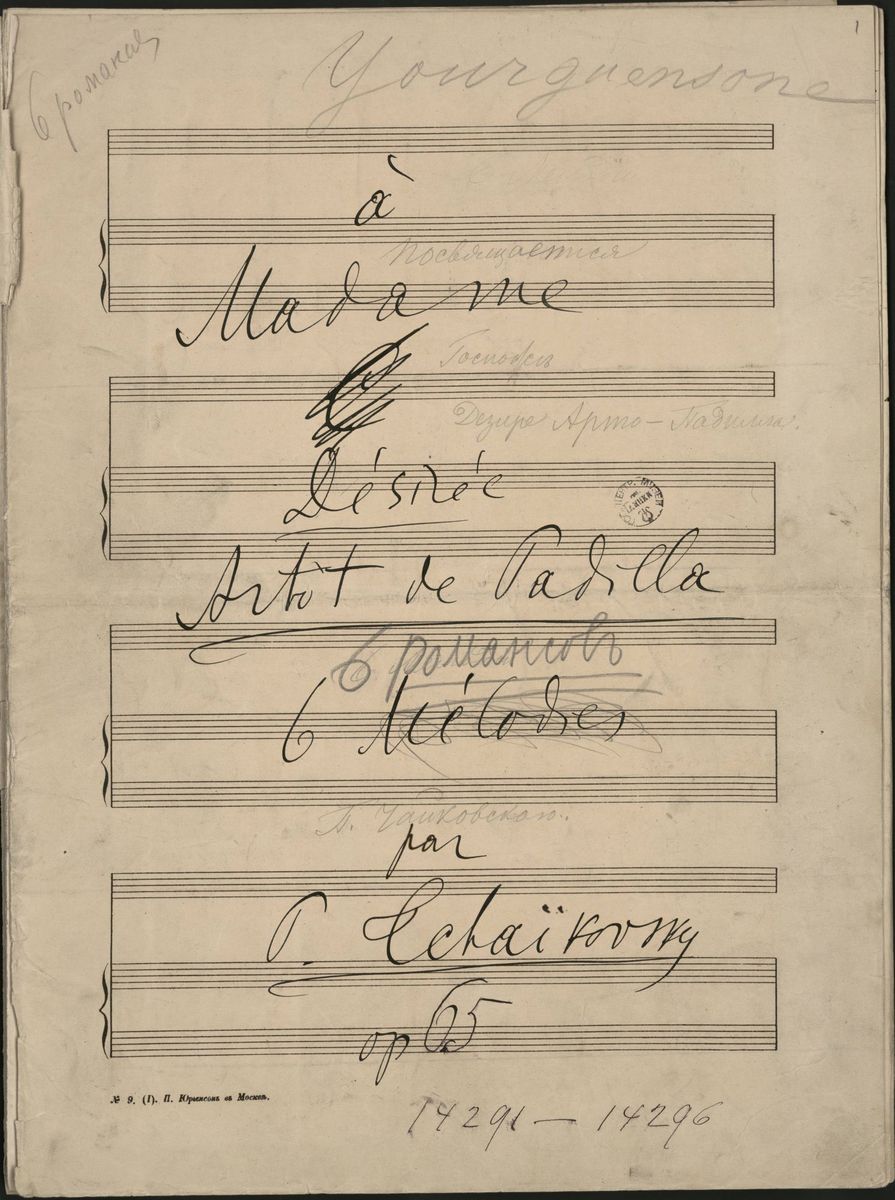 1
6 романсов
Yourguensone
à
Посвящается
Madame
Госпоже
Дезире Арто — Падилла.
Désirée
Artôt de Padilla
6 романсовъ
6 Mélodies
П. Чайковского.
par
P. Tschaïkovsky
op 65
№ 9. (I). П. Юргенсонъ въ Москвѣ.
14291 — 14296